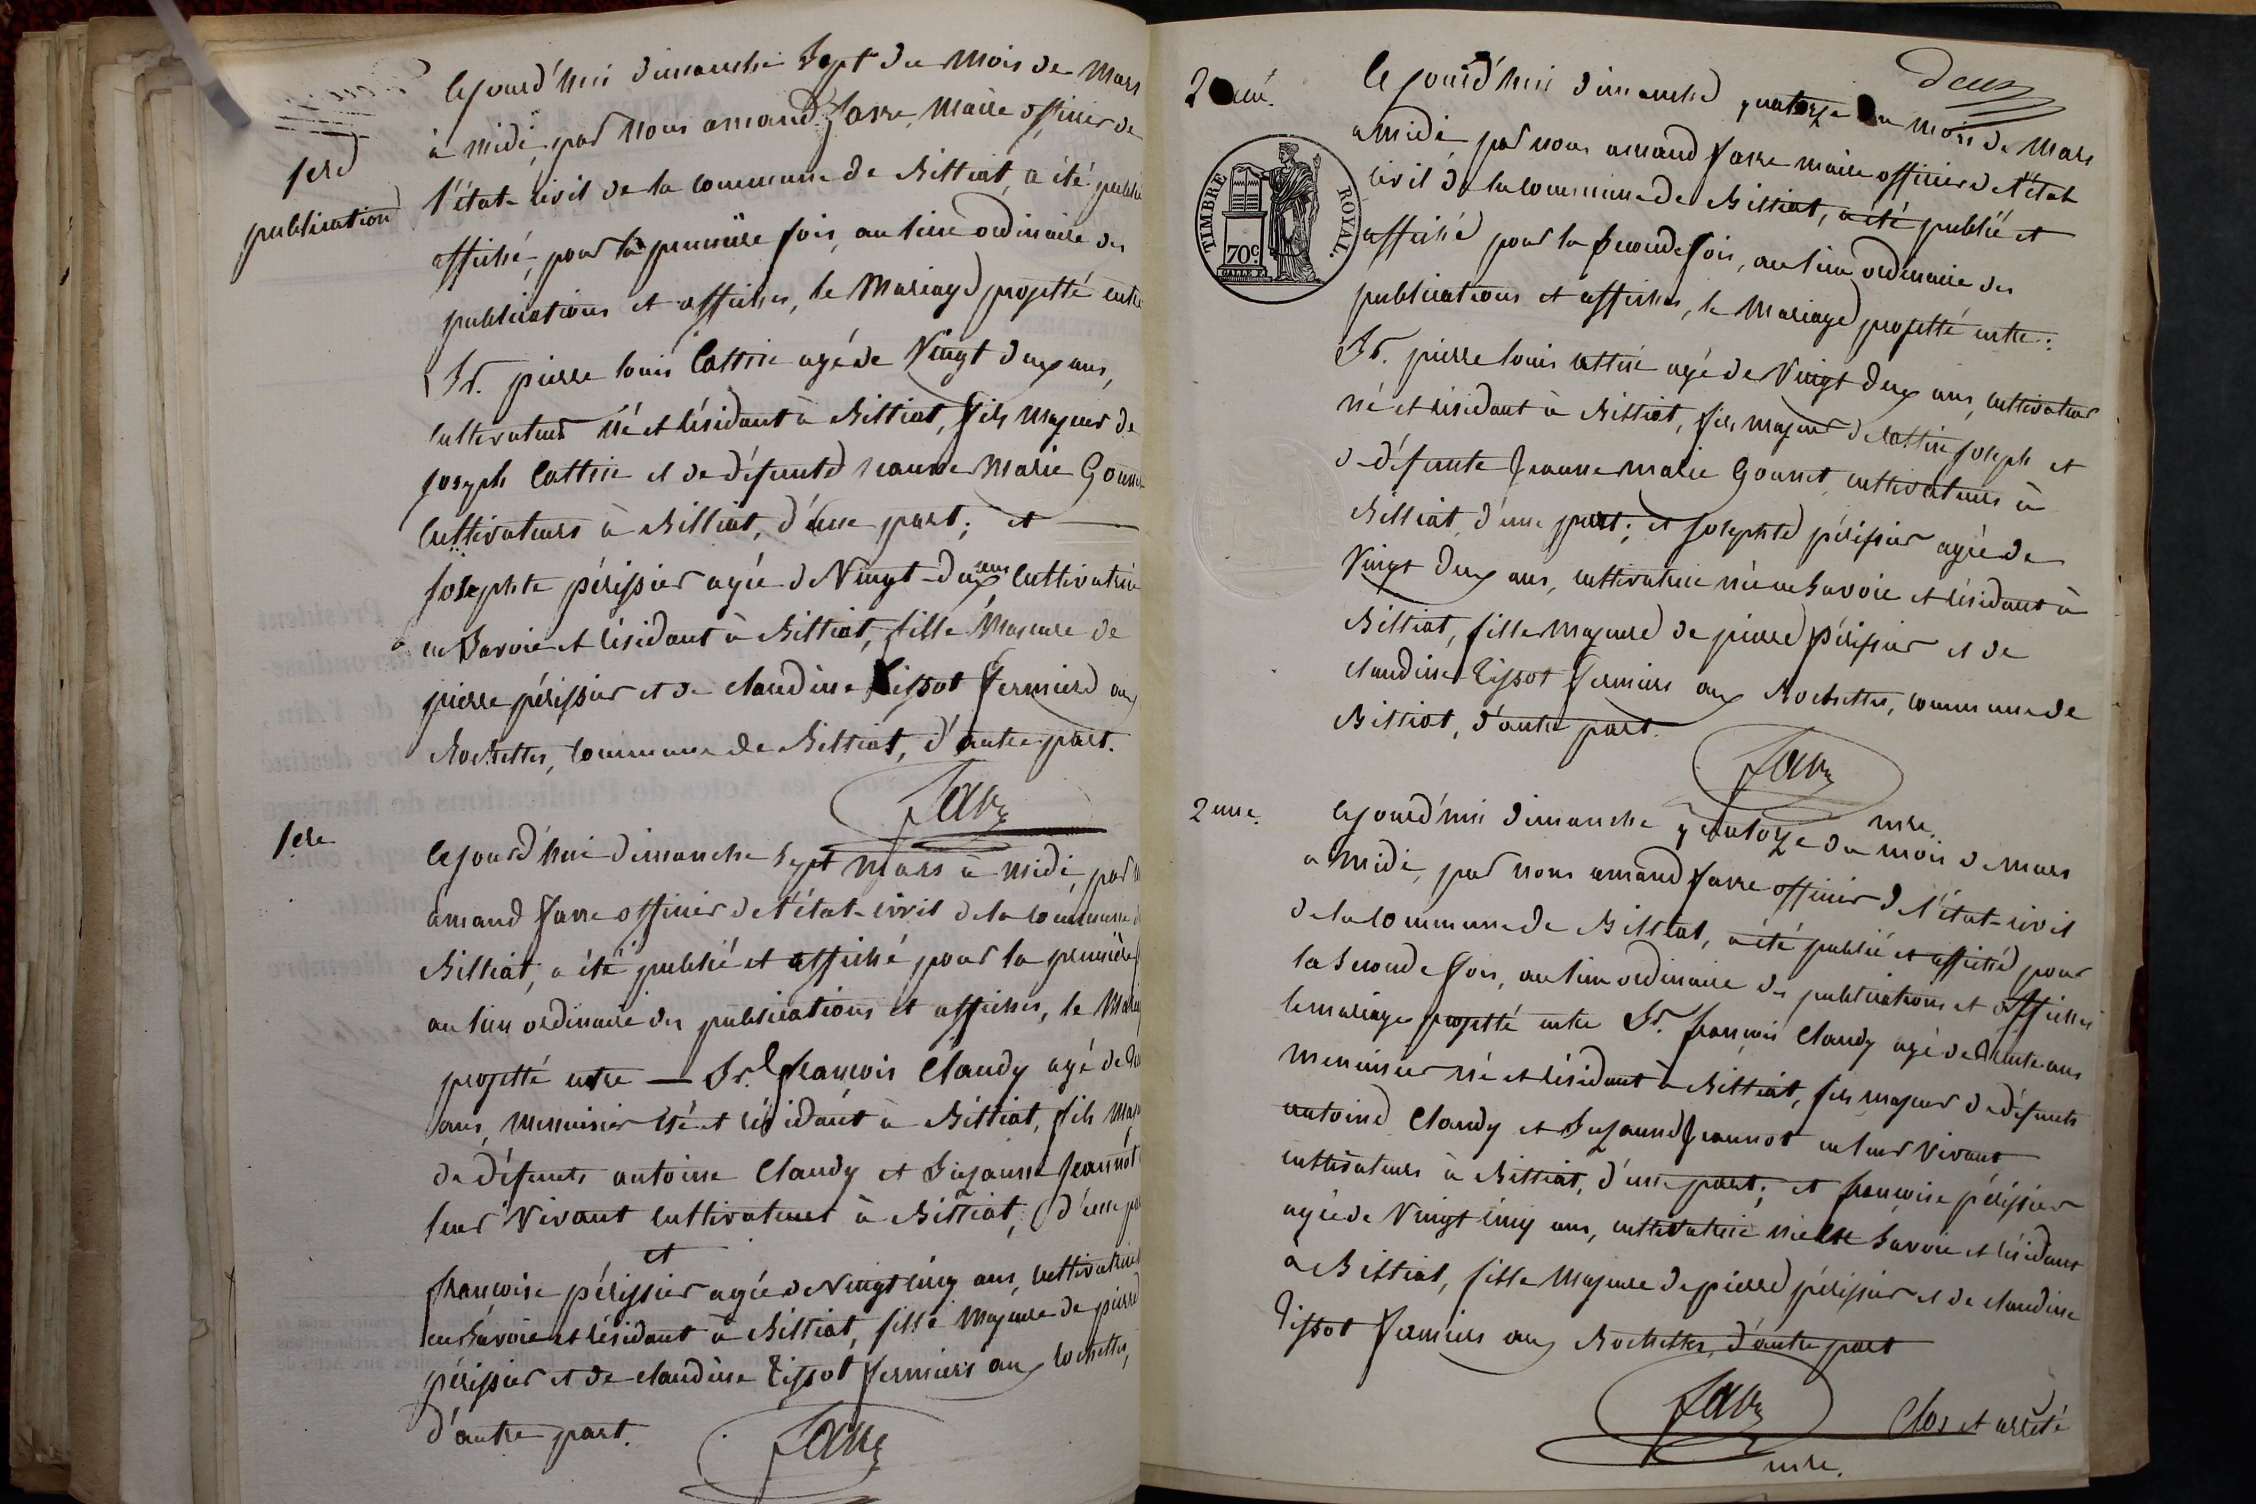 1ere
publication
Cejourd'hui dimanche Sept du Mois de Mars
à midi, par nous amand favre, Maire officier de
l'état-civil de la commune de Billiat, a été publié
affiché, pour la première fois, au lieu ordinaire des
publications et affiches, le Mariage projetté entre
Sr. pierre louis Cattin agé de Vingt deux ans,
Cultivateur né et résidant à Billiat, fils Majeur de
joseph Cattin et de défunte jeanne Marie
Cultivateurs à Billiat, d'une part; et
josephte périssier agée de Vingt-deux ans, Cultivatrice
en Savoie et résidant à Billiat, fille Majeure de
pierre périssier et de claudine Tissot fermiers aux
Rochettes, Commune de Billiat, d'autre part.
favre
1ere
Cejourd'hui dimanche Sept Mars à midi, par
amand favre officier de l'état-civil de la commune
Billiat, a été publié et affiché pour la première
au lieu ordinaire des publications et affiches, le
projetté entre — Sr. françois Claudy agé de
ans, Menuisier né et résidant à Billiat, fils
de défunts antoine Claudy et Suzanne Jeannot
leur Vivant Cultivateurs à Billiat, d'une
et
françoise périssier agée de Vingt cinq ans, Cultivatrice
en Savoie et résidant à Billiat, fille Majeure de pierre
périssier et de claudine Tissot fermiers aux rochettes,
d'autre part.
favre
deux
2eme.
TIMBRE ROYAL.
70c.
Cejourd'hui dimanche quatorze du mois de Mars
a midi par nous amand favre maire officier de l'état
civil de la commune de Billiat, a été publié et
affiché pour la Seconde fois, au lieu ordinaire des
publications et affiches, le Mariage projetté entre:
Sr. pierre louis cattin agé de Vingt deux ans, cultivateur
né et résidant à Billiat, fils majeur de cattin joseph et
de défunte Jeanne marie Gounet cultivateurs à
Billiat, d'une part; et josephte périssier agée de
Vingt deux ans, cultivatrice née en Savoie et résidant à
Billiat, fille majeure de pierre périssier et de
claudine Tissot fermiers aux Rochettes, commune de
Billiat, d'autre part.
favre
mre.
2eme.
Cejourd'hui dimanche quatorze du mois de mars
a Midi, par nous amand favre officier de l'état-civil
de la Commune de Billiat, a été publié et affiché pour
la Seconde fois, au lieu ordinaire des publications et affiches
le mariage projetté entre Sr. françois Claudy agé de trente ans
menuisier né et résidant à Billiat, fils majeur de défunts
antoine Claudy et Suzanne Jeannot en leur Vivant
cultivateurs à Billiat, d'une part; et françoise périssier
agée de Vingt cinq ans, cultivatrice née en Savoie et résidant
à Billiat, fille Majeure de pierre périssier et de claudine
Tissot fermiers aux Rochettes, d'autre part
favre
Clos et arrêté
mre.